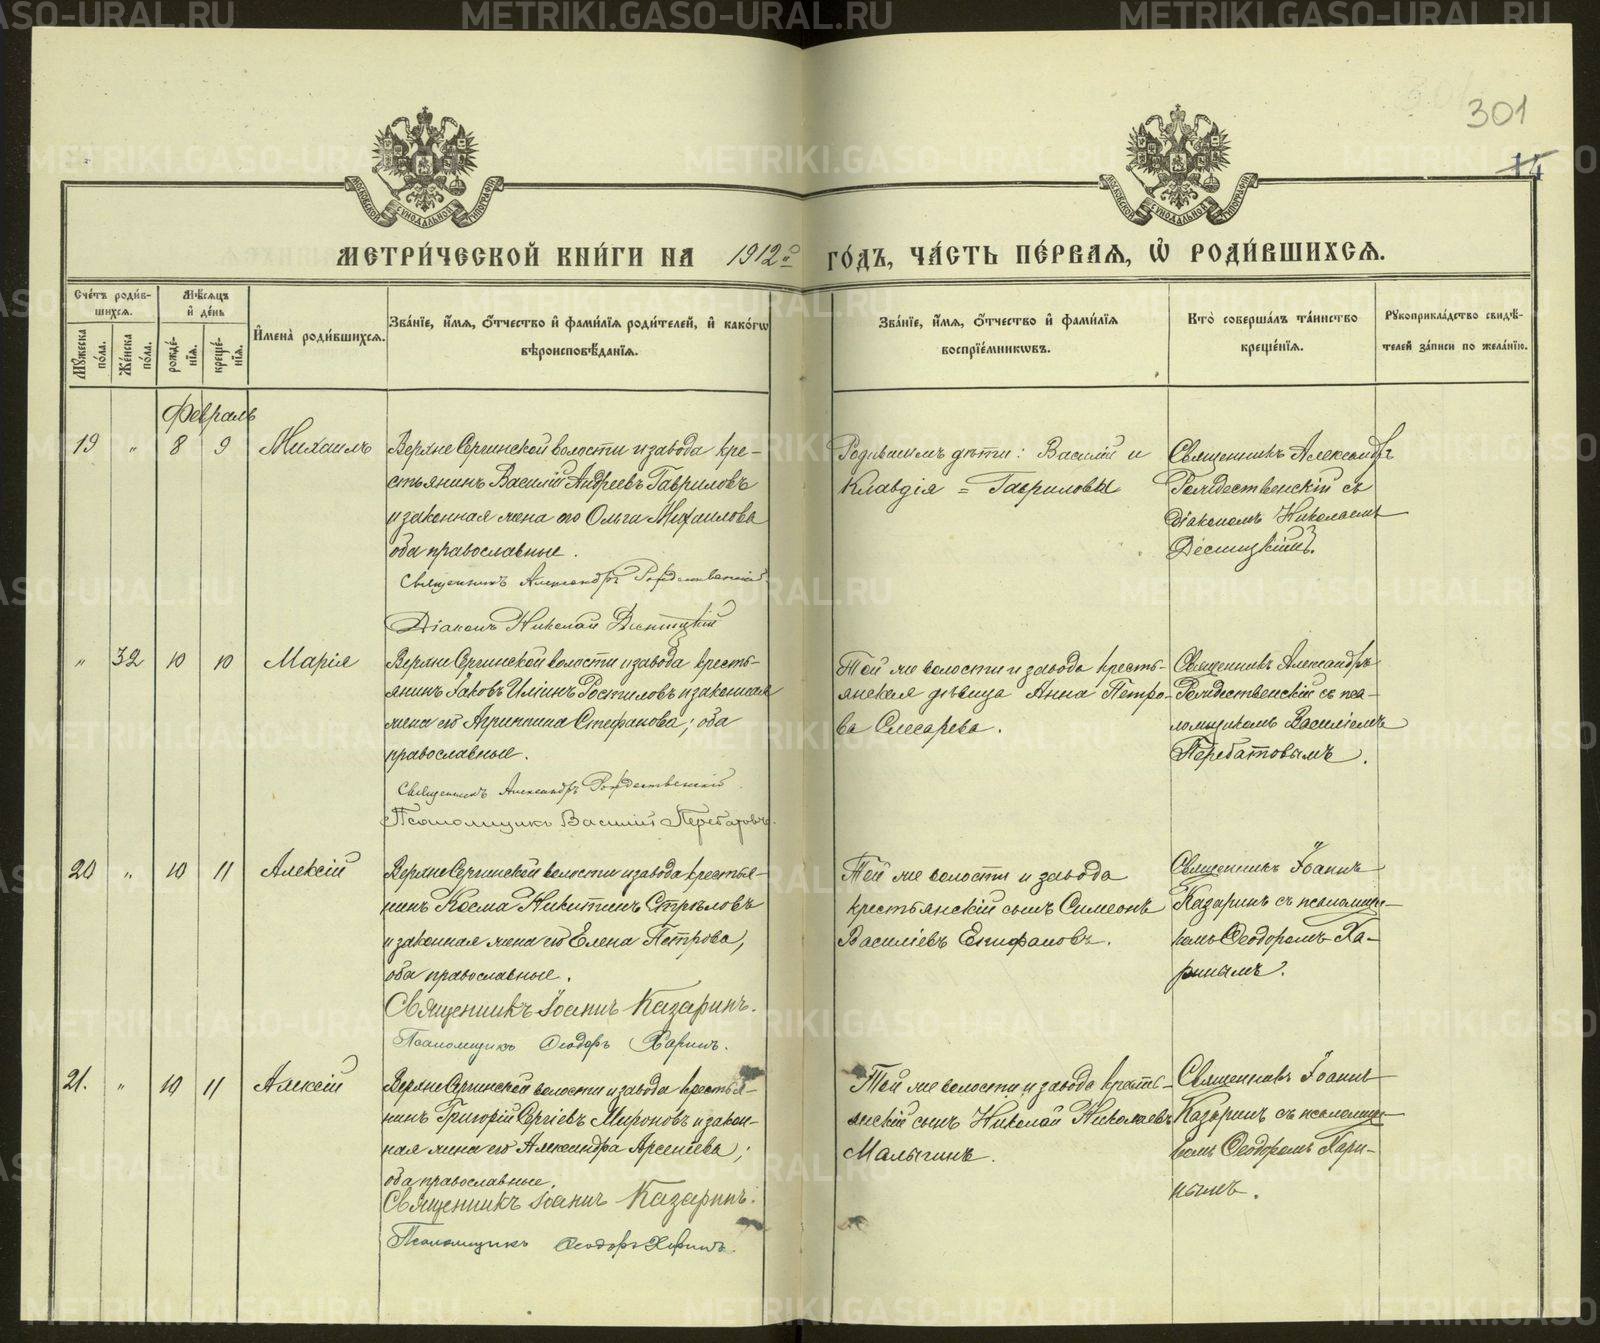 301
14
МЕТРИ́ЧЕСКОЙ КНИ́ГИ НА 1912й ГО́ДЪ, ЧА́СТЬ ПЕ́РВАѦ, Ѽ РОДИ́ВШИХСѦ.
Сче́тъ роди́вшихсѧ.
Мꙋ́жеска по́ла.
Же́нска по́ла.
Мѣ́сѧцъ и҆ де́нь
рожде́нїѧ.
креще́нїѧ.
И҆мена̀ роди́вшихсѧ.
Зва́нїе, и҆́мѧ, ѻ҆́тчество и҆ фами́лїѧ роди́телей, и҆ како́гѡ
вѣроисповѣ́данїѧ.
Зва́нїе, и҆́мѧ, ѻ҆́тчество и҆ фами́лїѧ
воспрїе́мникѡвъ.
Кто̀ соверша́лъ та́инство
креще́нїѧ.
Рꙋкоприкла́дство свидѣ́-
телей за́писи по жела́нїю.
Февраль
19 " 8 9 Михаилъ
Верхне Сергинской волости и завода кре-
стьянинъ Василій Андреевъ Гавриловъ
и законная жена его Ольга Михаилова
оба православные.
Священникъ Александръ Рождественскій
Діаконъ Николай Десницкій
Родившимъ дѣти: Василій и
Клавдія = Гавриловы
Священникъ Александръ
Рождественскій съ
діакономъ Николаемъ
Десницкимъ.
" 32 10 10 Марія
Верхне Сергинской волости и завода кресть-
янинъ Іаковъ Ростиловъ и законная
жена его Агриппина Стефанова; оба
православные.
Священникъ Александръ Рождественскій
Псаломщикъ Василій Перебатовъ.
Той же волости и завода кресть-
янская дѣвица Анна Петро-
ва Слесарева.
Священникъ Александръ
Рождественскій съ пса-
ломщикомъ Василіемъ
Перебатовымъ.
20 " 10 11 Алексій
Верхне Сергинской волости и завода крестья-
нинъ Косма Никитинъ Стрѣловъ
и законная жена его Елена Петрова,
оба православные.
Священникъ Іоаннъ Казаринъ.
Псаломщикъ Ѳеодоръ Харинъ.
Той же волости и завода
крестьянскій сынъ Симеонъ
Василіевъ Епифановъ.
Священникъ Іоаннъ
Казаринъ съ псаломщи-
комъ Ѳеодоромъ Ха-
ринымъ.
21. " 10 11 Алексій
Верхне Сергинской волости и завода крестья-
нинъ Григорій Сергіевъ Мироновъ и закон-
ная жена его Александра Арсеніева;
оба православные.
Священникъ Іоаннъ Казаринъ.
Псаломщикъ Ѳеодоръ Харинъ.
Той же волости и завода кресть-
янскій сынъ Николай Николаевъ
Малыгинъ.
Священникъ Іоаннъ
Казаринъ съ псаломщи-
комъ Ѳеодоромъ Хари-
нымъ.
METRIKI.GASO-URAL.RU